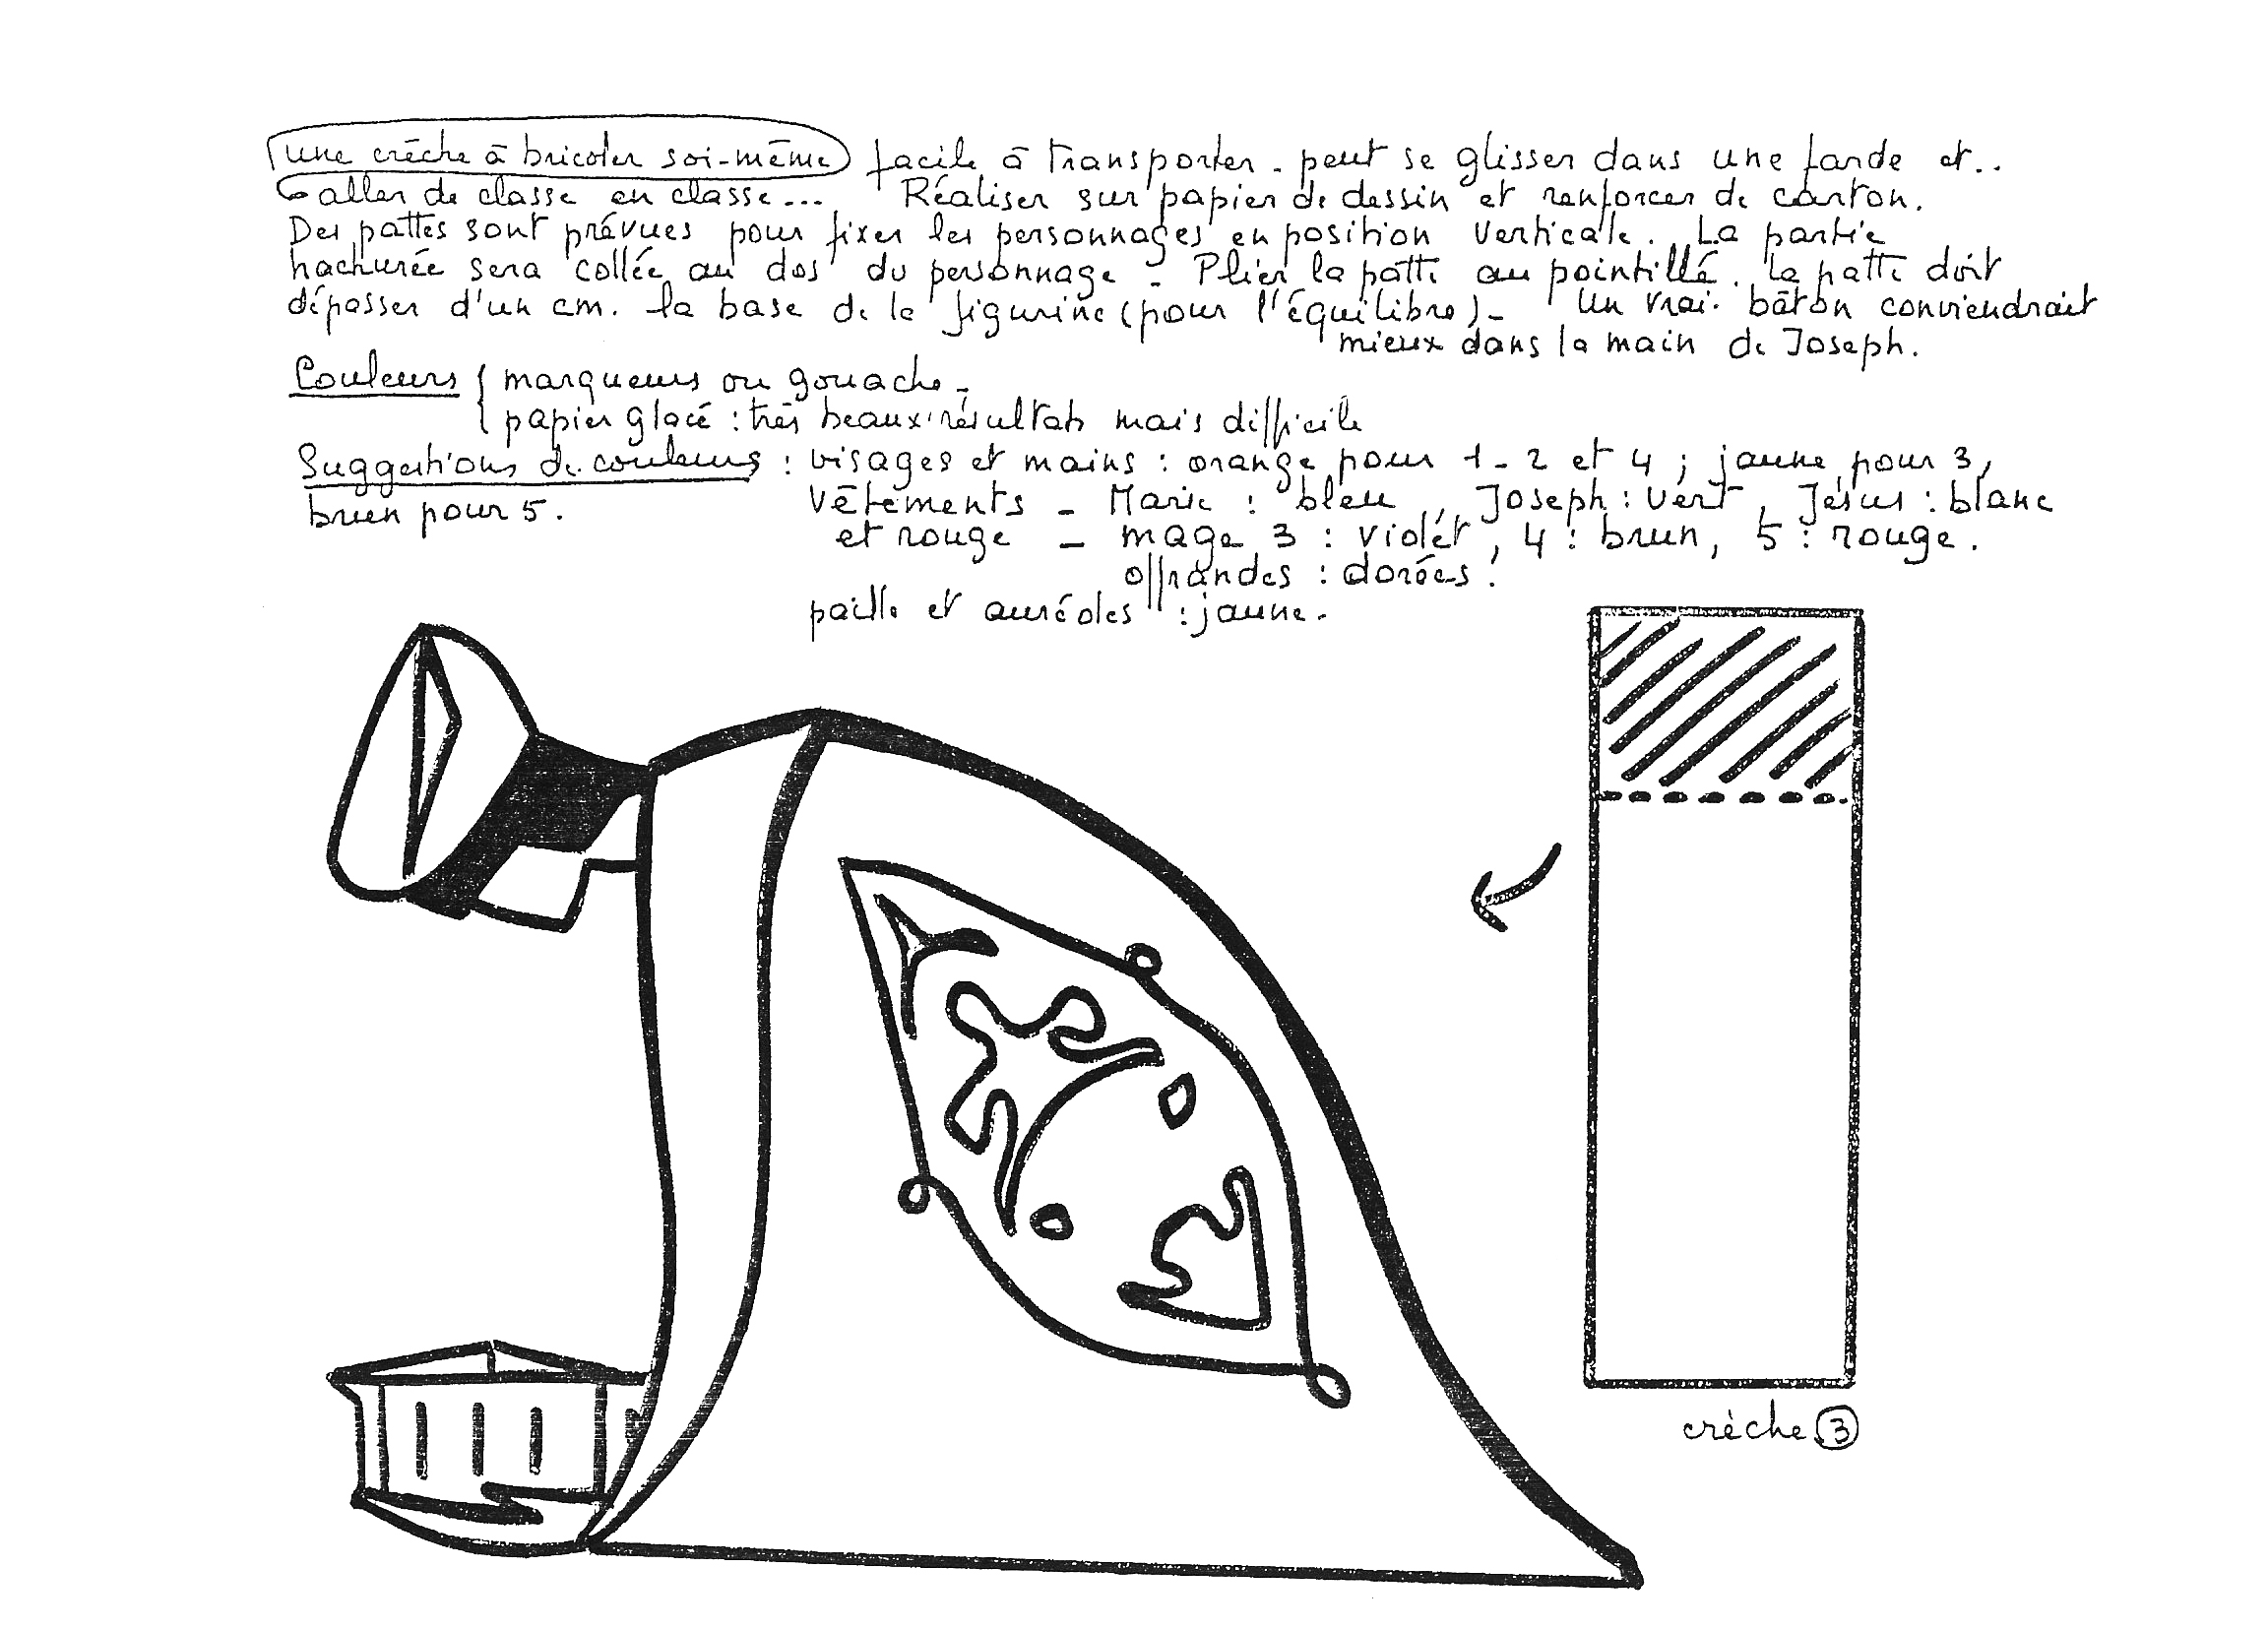 une crèche à bricoler soi-même facile à transporter - peut se glisser dans une farde et..
aller de classe en classe... Réaliser sur papier de dessin et renforcer de carton.
Des pattes sont prévues pour fixer les personnages en position verticale. La partie
hachurée sera collée au dos du personnage - Plier la patte au pointillé. La patte doit
dépasser d'un cm. la base de la figurine (pour l'équilibre) - Un vrai bâton conviendrait
mieux dans la main de Joseph.
Couleurs { marqueurs ou gouache -
papier glacé : très beaux résultats mais difficile
Suggestions de couleurs : visages et mains : orange pour 1 - 2 et 4 ; jaune pour 3,
brun pour 5. Vêtements - Marie : bleu, Joseph : vert, Jésus : blanc
et rouge - mage 3 : violet, 4 : brun, 5 : rouge.
offrandes : dorées.
paille et auréoles : jaune.
crèche 3